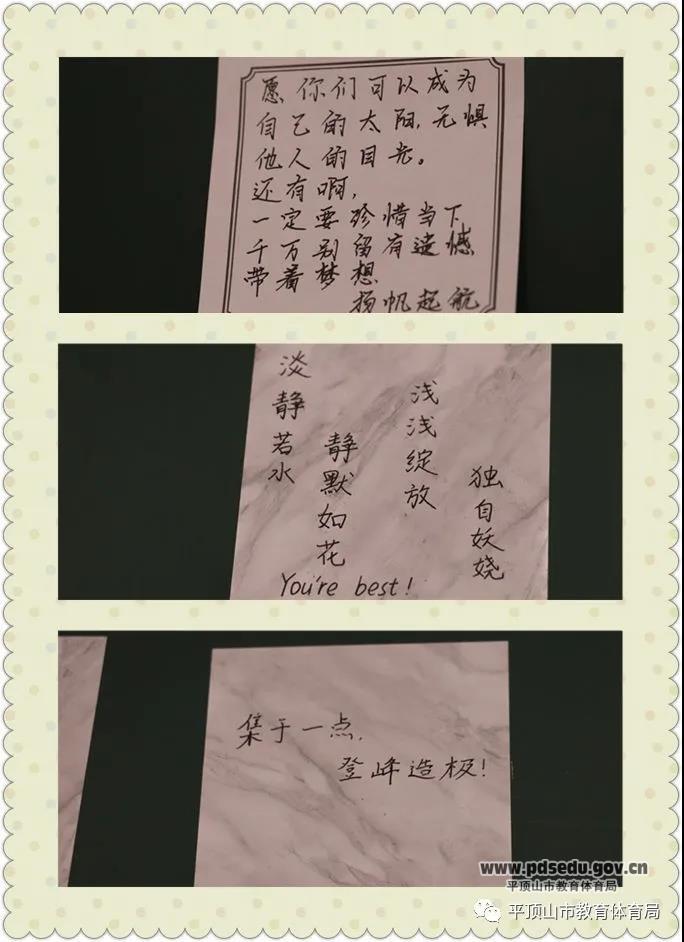 愿你们可以成为
自己的太阳,无惧
他人的目光。
还有啊,
一定要珍惜当下
千万别留有遗憾
带着梦想
扬帆起航
淡静若水
静默如花
浅浅绽放
独自妖娆
You're best!
集于一点,
登峰造极!
www.pdsedu.gov.cn
平顶山市教育体育局
平顶山市教育体育局